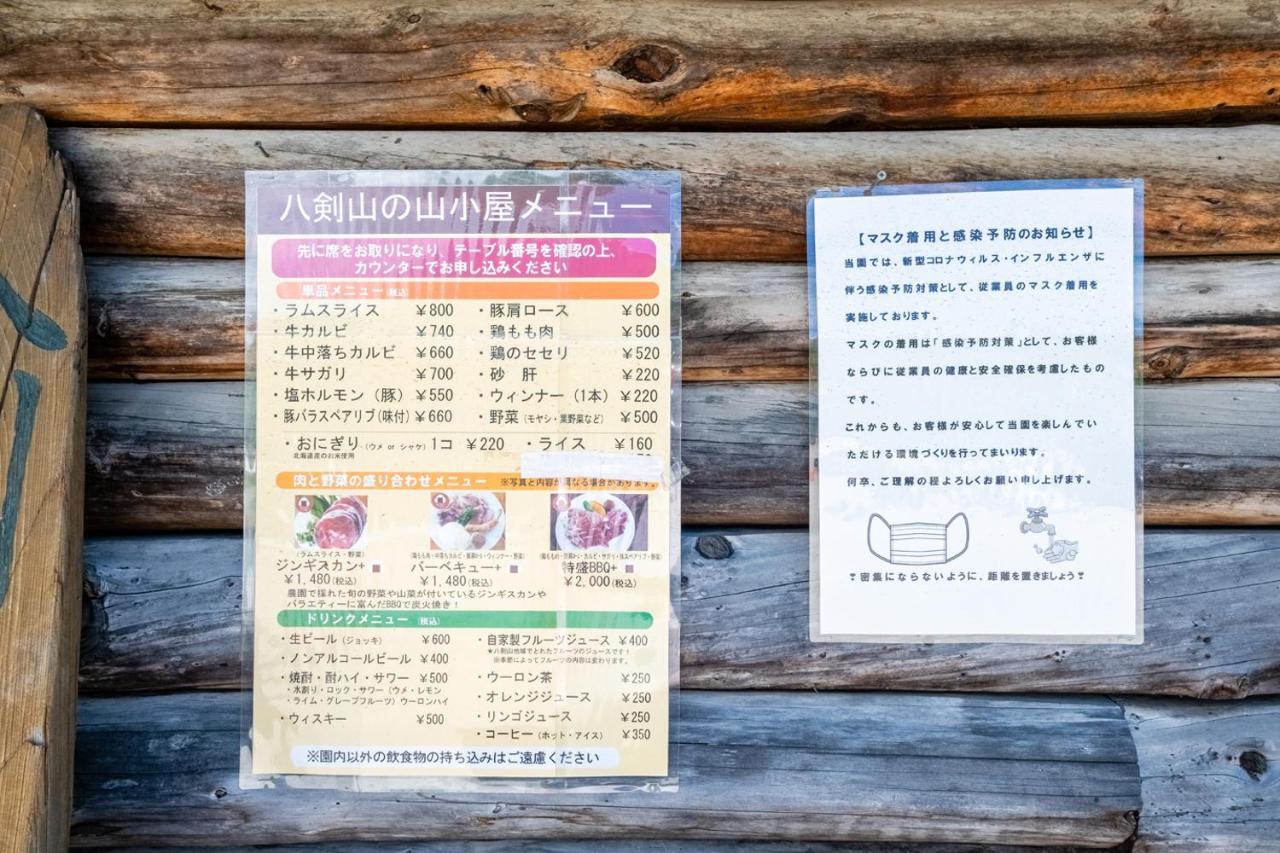 八剣山の山小屋メニュー
先に席をお取りになり、テーブル番号を確認の上、
カウンターでお申し込みください
単品メニュー(税込)
・ラムスライス ￥800
・牛カルビ ￥740
・牛中落ちカルビ ￥660
・牛サガリ ￥700
・塩ホルモン（豚）￥550
・豚バラスペアリブ(味付)￥660
・豚肩ロース ￥600
・鶏もも肉 ￥500
・鶏のセセリ ￥520
・砂 肝 ￥220
・ウィンナー（1本）￥220
・野菜（モヤシ・葉野菜など）￥500
・おにぎり（ウメ or シャケ）1コ ￥220
北海道産のお米使用
・ライス ￥160
肉と野菜の盛り合わせメニュー ※写真と内容が異なる場合があります。
（ラムスライス・野菜）
ジンギスカン+
￥1,480(税込)
バーベキュー+
￥1,480(税込)
特盛BBQ+
￥2,000(税込)
農園で採れた旬の野菜や山菜が付いているジンギスカンや
バラエティーに富んだBBQで炭火焼き！
ドリンクメニュー (税込)
・生ビール（ジョッキ） ￥600
・ノンアルコールビール ￥400
・焼酎・酎ハイ・サワー ￥500
・水割り・ロック・サワー（ウメ・レモン
・ライム・グレープフルーツ）ウーロンハイ
・ウィスキー ￥500
・自家製フルーツジュース ￥400
★八剣山地域でとれたフルーツのジュースです！
※季節によってフルーツの内容は変わります。
・ウーロン茶 ￥250
・オレンジジュース ￥250
・リンゴジュース ￥250
・コーヒー（ホット・アイス） ￥350
※園内以外の飲食物の持ち込みはご遠慮ください
【マスク着用と感染予防のお知らせ】
当園では、新型コロナウィルス・インフルエンザに
伴う感染予防対策として、従業員のマスク着用を
実施しております。
マスクの着用は「感染予防対策」として、お客様
ならびに従業員の健康と安全確保を考慮したもの
です。
これからも、お客様が安心して当園を楽しんでい
ただける環境づくりを行ってまいります。
何卒、ご理解の程よろしくお願い申し上げます。
❣密集にならないように、距離を置きましょう❣